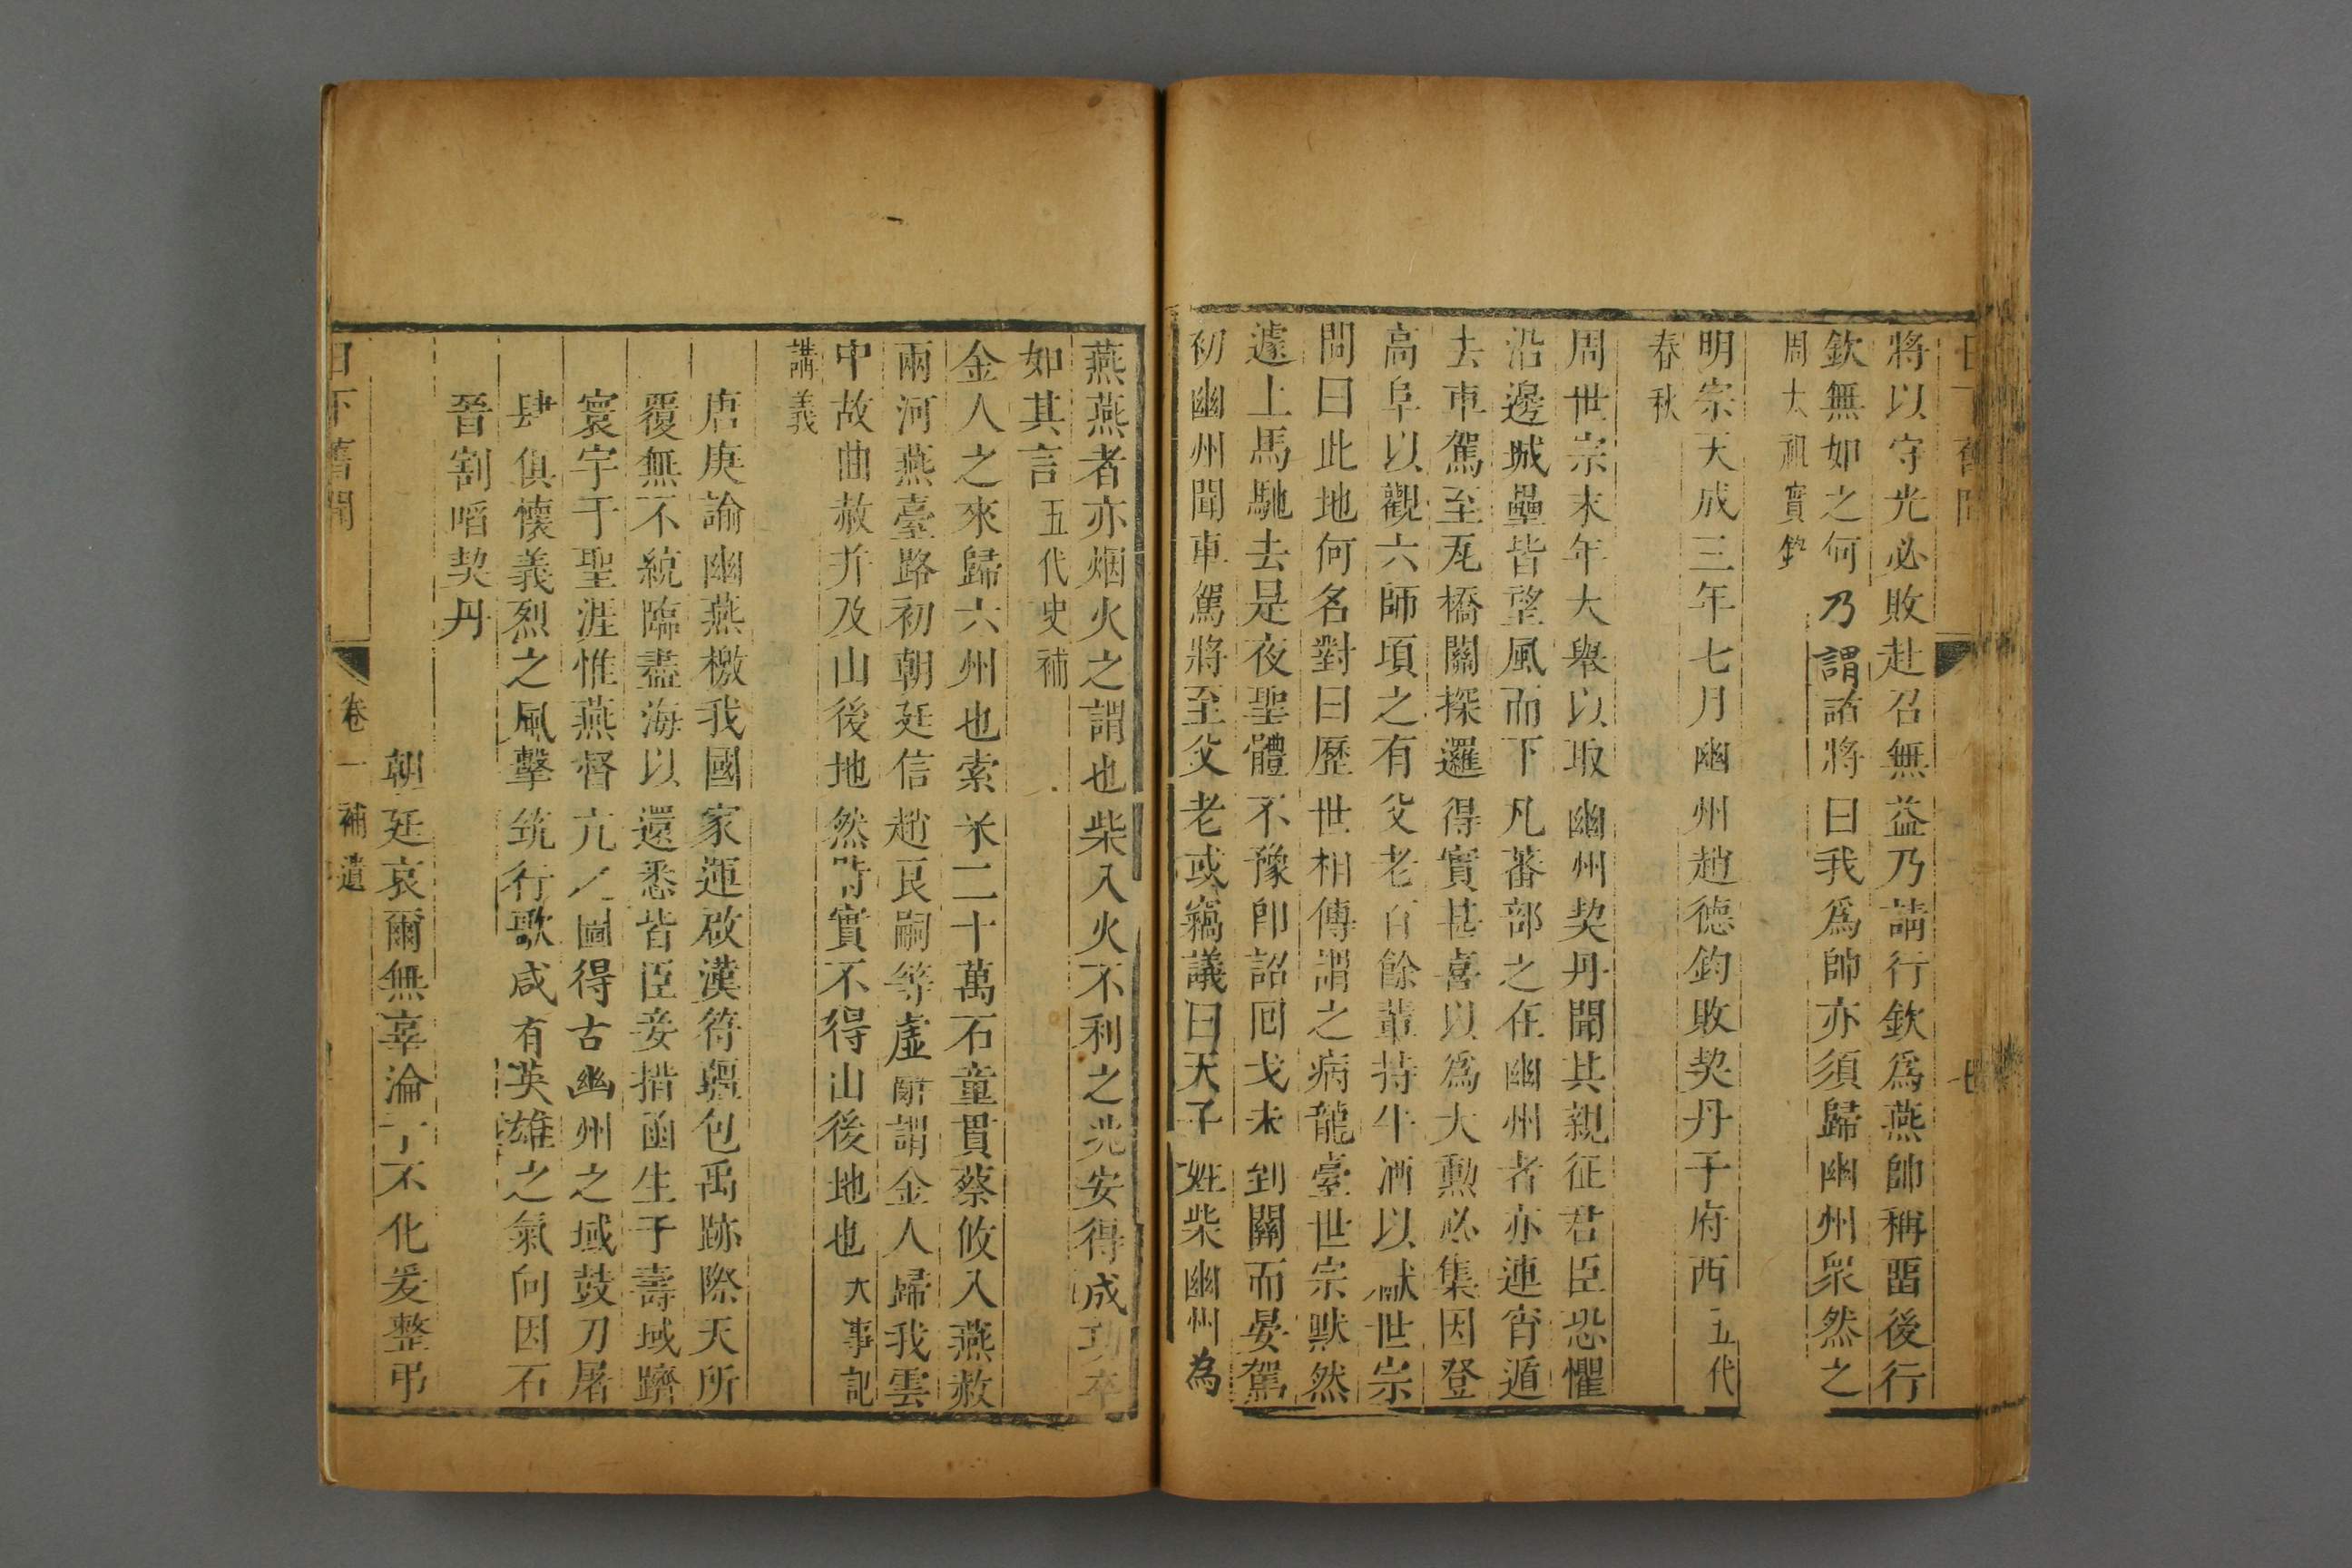 日下舊聞
七
將以守光必敗赴召無益乃請行欽爲燕帥稱畱後行
欽無如之何乃謂諸將曰我爲帥亦須歸幽州衆然之
周太祖實錄
明宗天成三年七月幽州趙德鈞敗契丹于府西五代
春秋
周世宗末年大舉以取幽州契丹聞其親征君臣恐懼
沿邊城壘皆望風而下凡蕃部之在幽州者亦連宵遁
去車駕至瓦橋關探邏得實甚喜以爲大勲必集因登
高阜以觀六師頃之有父老百餘輩持牛酒以獻世宗
問曰此地何名對曰歷世相傳謂之病龍臺世宗默然
遽上馬馳去是夜聖體不豫卽詔回戈未到關而晏駕
初幽州聞車駕將至父老或竊議曰天子姓柴幽州為
燕燕者亦烟火之謂也柴入火不利之兆安得成功卒
如其言五代史補
金人之來歸六州也索米二十萬石童貫蔡攸入燕赦
兩河燕臺路初朝廷信趙良嗣等虛辭謂金人歸我雲
中故曲赦并及山後地然時實不得山後地也大事記
講義
唐庚諭幽燕檄我國家運啟漢符疆包禹跡際天所
覆無不統臨盡海以還悉皆臣妾措函生于壽域躋
寰宇于聖涯惟燕督亢之圖得古幽州之域鼓刀屠
肆俱懷義烈之風擊筑行歌咸有英雄之氣向因石
晉割啗契丹
朝廷哀爾無辜淪于不化爰整弔
日下舊聞
卷一補遺